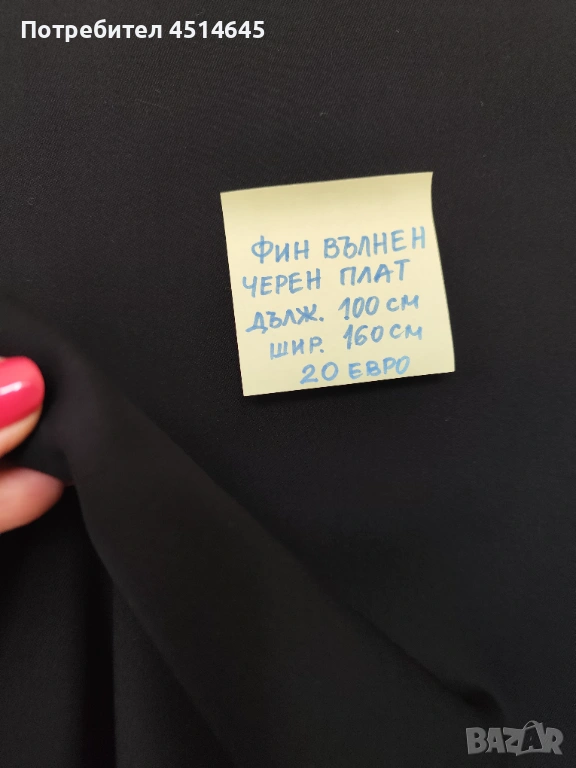 Потребител 4514645
ФИН ВЪЛНЕН
ЧЕРЕН ПЛАТ
ДЪЛЖ. 100 СМ
ШИР. 160 СМ
20 ЕВРО
BAZAR